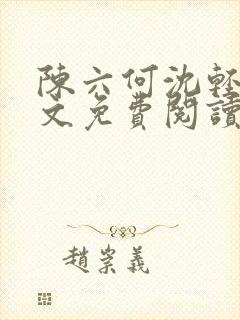 陳六何沈輕
文免費閱讀
趙崇義